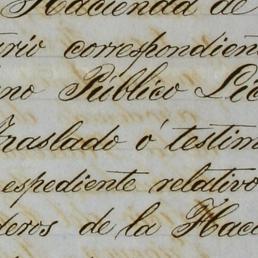 Hacienda de
ario correspondient
no Público Lic
Traslado ó testim
espediente relativo
deros de la Hac